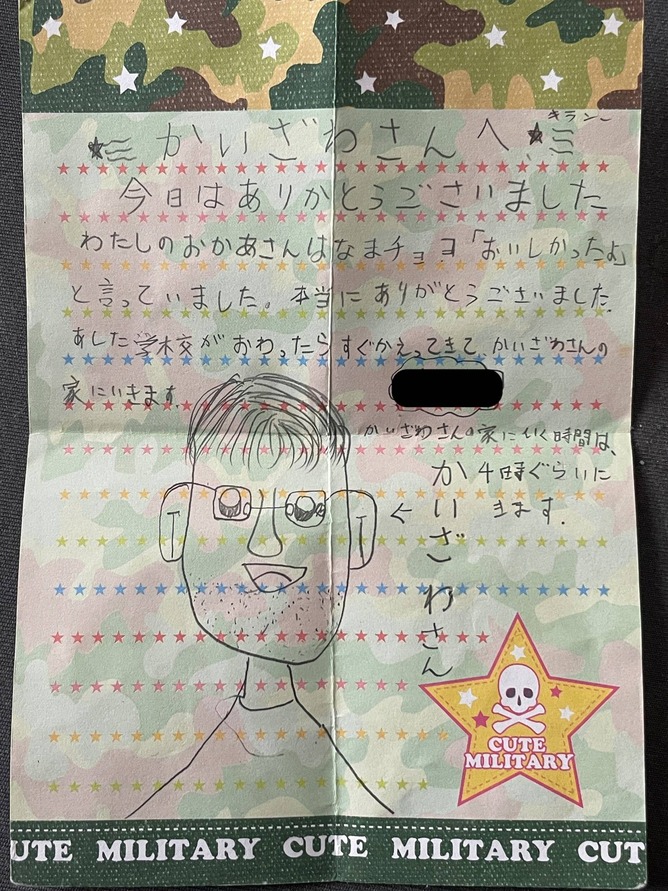 かいざわさんへ
キラン〜
今日はありがとうございました
わたしのおかあさんはなまチョコ「おいしかったよ」
と言っていました。本当にありがとうございました。
あした学校がおわったらすぐかえってきて、かいざわさんの
家にいきます。
かいざわさんの家にいく時間は、
4時ぐらいに
きます。
←かいざわさん
CUTE
MILITARY
CUTE MILITARY CUTE MILITARY CUT